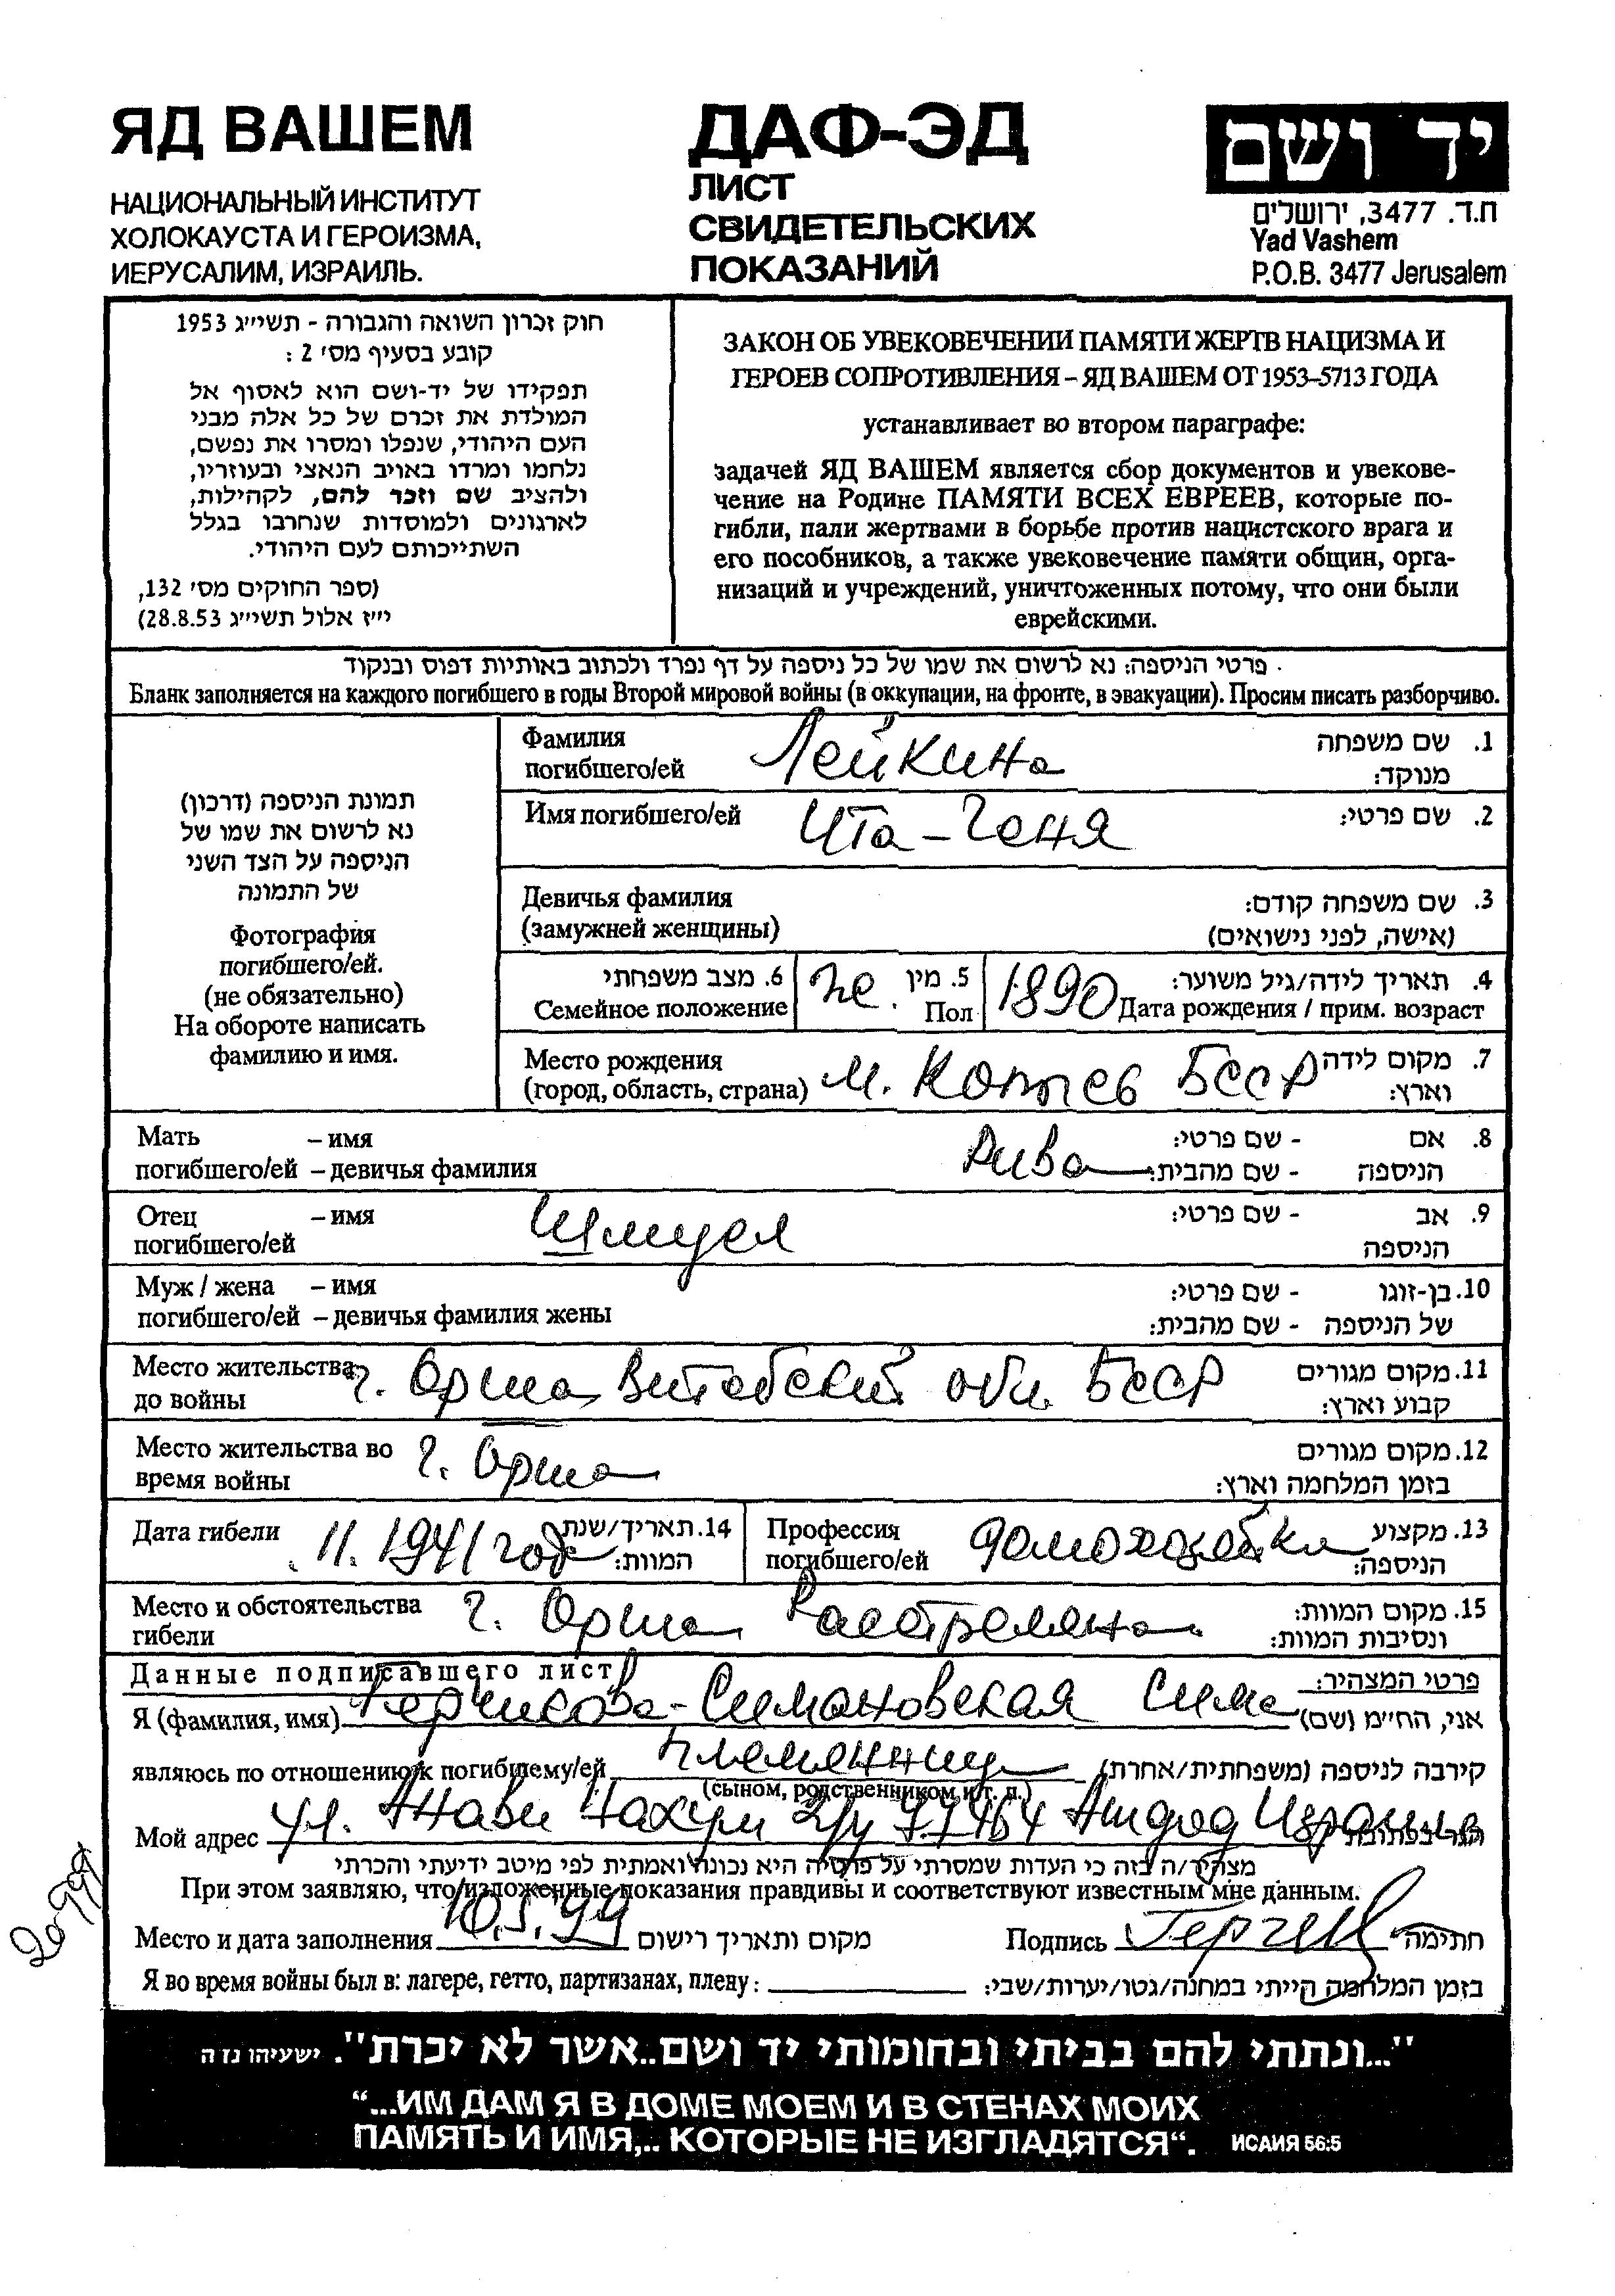 ЯД ВАШЕМ
НАЦИОНАЛЬНЫЙ ИНСТИТУТ
ХОЛОКАУСТА И ГЕРОИЗМА,
ИЕРУСАЛИМ, ИЗРАИЛЬ.
ДАФ-ЭД
ЛИСТ
СВИДЕТЕЛЬСКИХ
ПОКАЗАНИЙ
יד ושם
ת.ד. 3477, ירושלים
Yad Vashem
P.O.B. 3477 Jerusalem
חוק זכרון השואה והגבורה - תשי״ג 1953
קובע בסעיף מס׳ 2 :
תפקידו של יד-ושם הוא לאסוף אל
המולדת את זכרם של כל אלה מבני
העם היהודי, שנפלו ומסרו את נפשם,
נלחמו ומרדו באויב הנאצי ובעוזריו,
ולהציב שם וזכר להם, לקהילות,
לארגונים ולמוסדות שנחרבו בגלל
השתייכותם לעם היהודי.
(ספר החוקים מס׳ 132,
י״ז אלול תשי״ג 28.8.53)
ЗАКОН ОБ УВЕКОВЕЧЕНИИ ПАМЯТИ ЖЕРТВ НАЦИЗМА И
ГЕРОЕВ СОПРОТИВЛЕНИЯ – ЯД ВАШЕМ ОТ 1953–5713 ГОДА
устанавливает во втором параграфе:
задачей ЯД ВАШЕМ является сбор документов и увекове-
чение на Родине ПАМЯТИ ВСЕХ ЕВРЕЕВ, которые по-
гибли, пали жертвами в борьбе против нацистского врага и
его пособников, а также увековечение памяти общин, орга-
низаций и учреждений, уничтоженных потому, что они были
еврейскими.
פרטי הניספה: נא לרשום את שמו של כל ניספה על דף נפרד ולכתוב באותיות דפוס ובנקוד
Бланк заполняется на каждого погибшего в годы Второй мировой войны (в оккупации, на фронте, в эвакуации). Просим писать разборчиво.
תמונת הניספה (דרכון)
נא לרשום את שמו של
הניספה על הצד השני
של התמונה
Фотография
погибшего/ей.
(не обязательно)
На обороте написать
фамилию и имя.
Фамилия Лейкина 1. שם משפחה
погибшего/ей מנוקד:
Имя погибшего/ей Ита-Геня 2. שם פרטי:
Девичья фамилия 3. שם משפחה קודם:
(замужней женщины) (אישה, לפני נישואים)
6. מצב משפחתי 5. מין 4. תאריך לידה/גיל משוער:
Семейное положение же. Пол 1890 Дата рождения / прим. возраст
Место рождения 7. מקום לידה
(город, область, страна) м. Коптев БССР וארץ:
Мать – имя Рива 8. אם - שם פרטי:
погибшего/ей – девичья фамилия הניספה - שם מהבית:
Отец – имя Шмуел 9. אב - שם פרטי:
погибшего/ей הניספה
Муж / жена – имя 10. בן-זוגו - שם פרטי:
погибшего/ей – девичья фамилия жены של הניספה - שם מהבית:
Место жительства г. Орша Витебский обл. БССР 11. מקום מגורים
до войны קבוע וארץ:
Место жительства во г. Орша 12. מקום מגורים
время войны בזמן המלחמה וארץ:
Дата гибели 11. 1941 год 14. תאריך/שנת
המוות:
Профессия домохозяйка 13. מקצוע
погибшего/ей הניספה:
Место и обстоятельства г. Орша Расстреляна 15. מקום המוות:
гибели ונסיבות המוות:
Данные подписавшего лист פרטי המצהיר:
Я (фамилия, имя) Герчикова-Симановская Сима אני, הח״מ (שם)
являюсь по отношению к погибшему/ей племянница קירבה לניספה (משפחתית/אחרת)
(сыном, родственником и т. п.)
Мой адрес ул. Анави Нахум 2/4 77464 Ашдод Израиль
מצהיר/ה בזה כי העדות שמסרתי על פרטיה היא נכונה ואמתית לפי מיטב ידיעתי והכרתי
При этом заявляю, что изложенные показания правдивы и соответствуют известным мне данным.
Место и дата заполнения 10.5.99 מקום ותאריך רישום Подпись חתימה
Я во время войны был в: лагере, гетто, партизанах, плену: בזמן המלחמה הייתי במחנה/גטו/יערות/שבי:
"...ונתתי להם בביתי ובחומותי יד ושם..אשר לא יכרת". ישעיהו נז ה
“...ИМ ДАМ Я В ДОМЕ МОЕМ И В СТЕНАХ МОИХ
ПАМЯТЬ И ИМЯ,.. КОТОРЫЕ НЕ ИЗГЛАДЯТСЯ“. ИСАИЯ 56:5